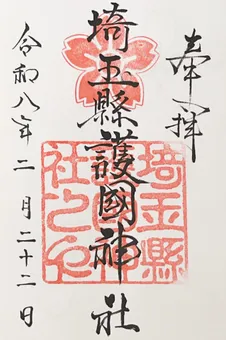 奉拝
埼玉縣護國神社
令和八年二月二十二日
埼玉縣
社之印